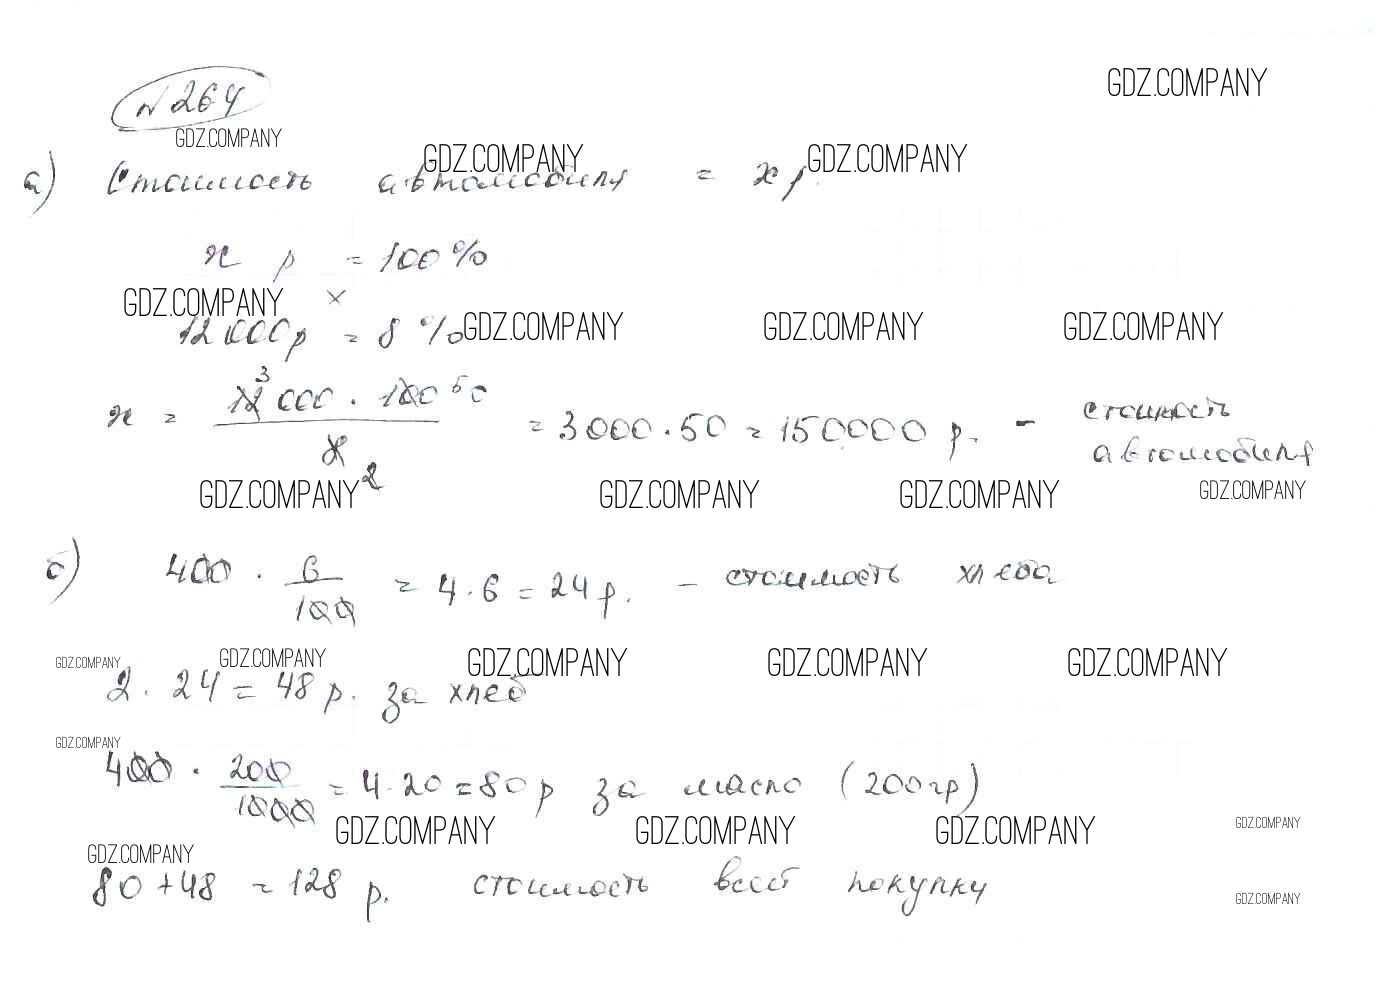 № 264
GDZ.COMPANY
GDZ.COMPANY
GDZ.COMPANY GDZ.COMPANY
а) Стоимость автомобиля = х р.
х р = 100%
GDZ.COMPANY ×
12000р = 8 % GDZ.COMPANY GDZ.COMPANY GDZ.COMPANY
х = 12 3 000 · 100 50 / 8 2 = 3000 · 50 = 150000 р. - стоимость автомобиля
GDZ.COMPANY GDZ.COMPANY GDZ.COMPANY GDZ.COMPANY
б) 400 · 6/100 = 4 · 6 = 24 р. - стоимость хлеба
GDZ.COMPANY GDZ.COMPANY GDZ.COMPANY GDZ.COMPANY GDZ.COMPANY
2 · 24 = 48 р. за хлеб
GDZ.COMPANY
400 · 200/1000 = 4 · 20 = 80 р за масло (200гр)
GDZ.COMPANY GDZ.COMPANY GDZ.COMPANY GDZ.COMPANY
GDZ.COMPANY
80 + 48 = 128 р. стоимость всей покупки
GDZ.COMPANY